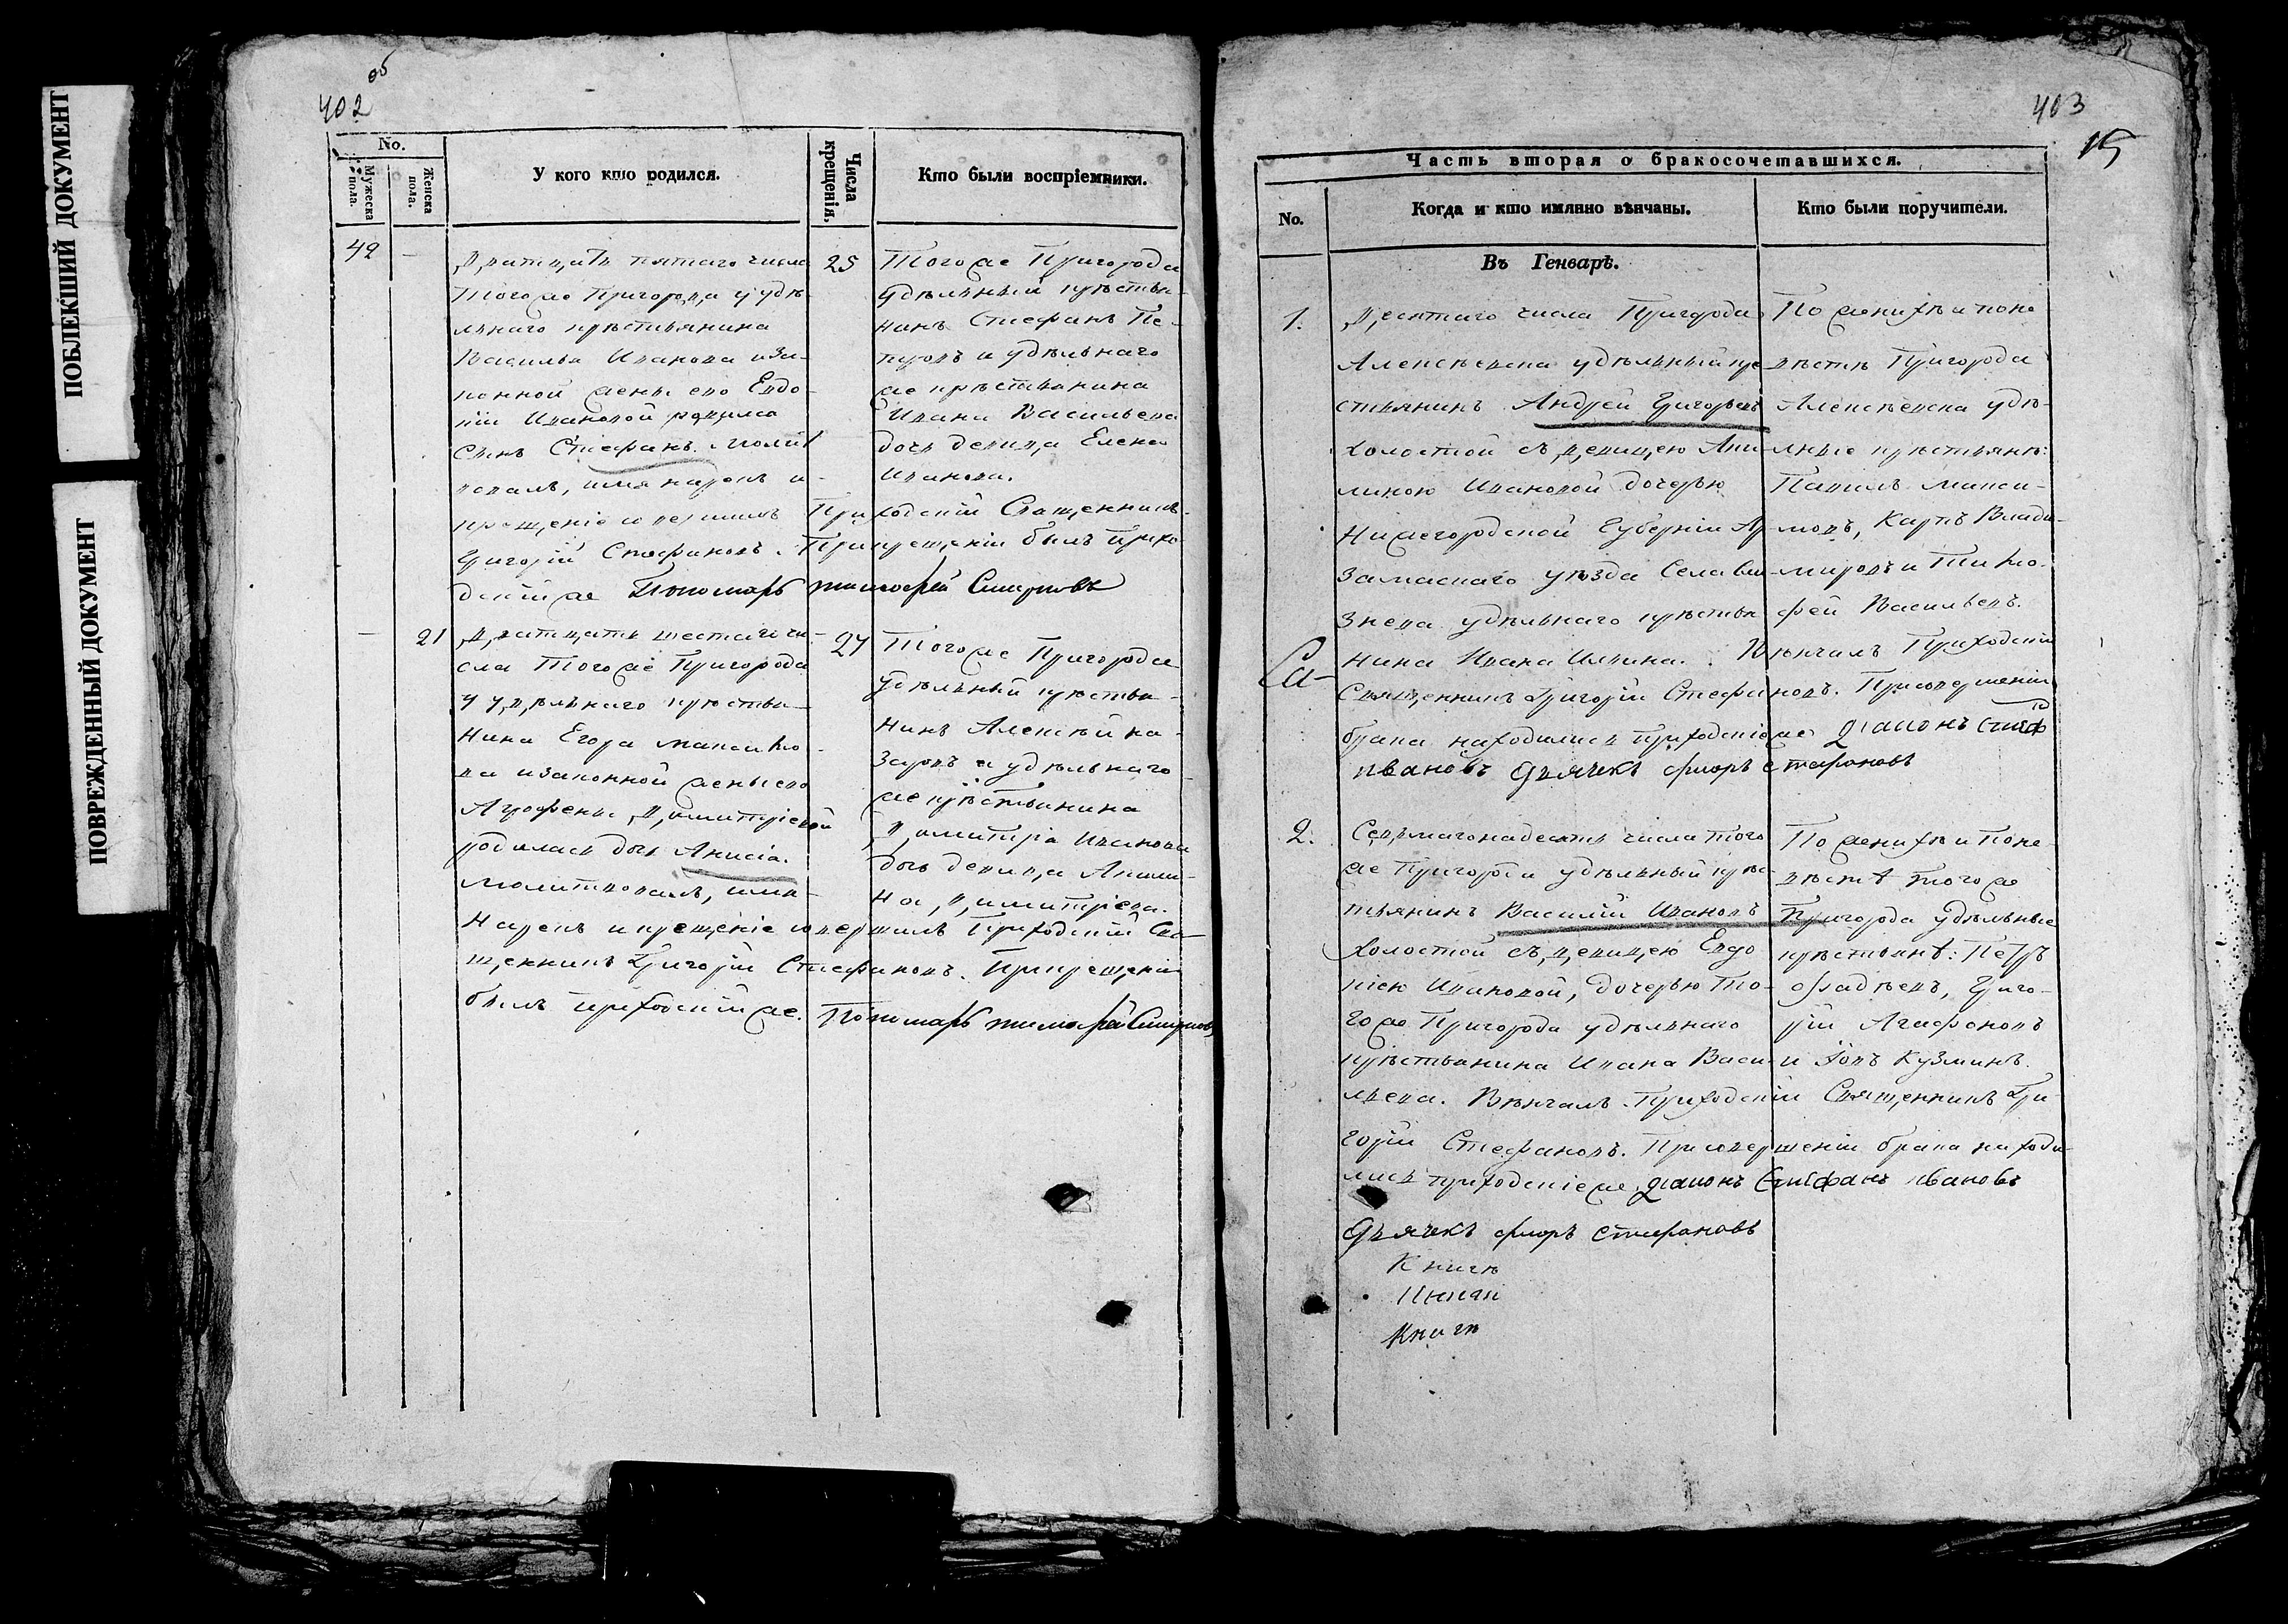 ПОБЛЕКШИЙ ДОКУМЕНТ
ПОВРЕЖДЕННЫЙ ДОКУМЕНТ
об
402
No.
Мужеска пола.
Женска пола.
У кого кто родился.
Числа крещенія.
Кто были воспріемники.
42
—
Дватцать пятаго числа
тогоже Пригорода у удѣ-
льнаго крѣстьянина
Василья Иванова и за-
конной жены его Евдо-
кіи Ивановой родился
сынъ Стефанъ. Молит
вовалъ, имя нарекъ и
крещеніе совершилъ Приходскій Священникъ
Григорій Стефановъ. При крещеніи былъ Прихо-
дскій же Пономарь тимофей Смирновъ
25
Тогоже Пригорода
Удѣльный крѣстья-
нинъ Стефанъ Пе-
тровъ и удѣльнаго
же крѣстьянина
Ивана Васильева
дочь девица Елена
Иванова.
—
21
Дватцать шестаго чи-
сла Тогоже Пригорода
у удѣльнаго крѣстья-
нина Егора Максимо-
ва и законной жены его
Агрофены Димитріевой
родилась дочь Анисіа.
Молитвовалъ, имя
Нарекъ и крещеніе совершилъ Приходскій Свя-
щенникъ Григорій Стефановъ. При крещеніи
былъ приходскій же. Пономарь тимофей Смирновъ
27
Тогоже Пригорода
удѣльный крѣстья-
нинъ Алексѣй На-
заровъ и удѣльнаго
же крѣстьянина
Димитріа Иванова
дочь девица Акили-
на Димитріева.
403
15
Часть вторая о бракосочетавшихся.
No.
Когда и кто имянно вѣнчаны.
Кто были поручители.
Въ Генварѣ.
1.
Десятаго числа Пригорода
Алексѣевска удѣльный кре-
стьянинъ Андрей Григорьевъ
холостой съ девицею Аки-
линою Ивановой дочерью
Нижегородской Губерніи Ар-
замаскаго уѣзда Села
удѣльнаго крѣстья
нина Ивана Ильина. Вѣнчалъ Приходскій
Священникъ Григорій Стефановъ. При совершеніи
брака находились Приходскіе же діаконъ Стеф
ивановъ Дьячекъ флоръ стефановъ
По женихѣ и поне
вѣстѣ Пригорода
Алексѣевска удѣ-
льные крѣстьянѣ:
Павилъ Макси-
мовъ, Карпъ Влади-
мировъ и Тимо-
фей Васильевъ.
2.
Седьмагонадесять числа того
же Пригорода удѣльный крѣс-
тьянинъ Василій Ивановъ
холостой съ девицею Евдо
кіею Ивановой, дочерью то-
гоже Пригорода удѣльнаго
крѣстьянина Ивана Васи-
льева. Вѣнчалъ Приходскій Священникъ Гри-
горій Стефановъ. При совершеніи брака находи-
лись приходскіе же діаконъ Стефанъ ивановъ
Дьячекъ флоръ стефановъ
По женихѣ и Поне
вѣстѣ тогоже
Пригорода удѣльные
крѣстьянѣ: Петръ
Фадѣевъ, Григо-
рій Агафоновъ
и Іовъ Кузминъ.
Книгѣ
Книгѣ